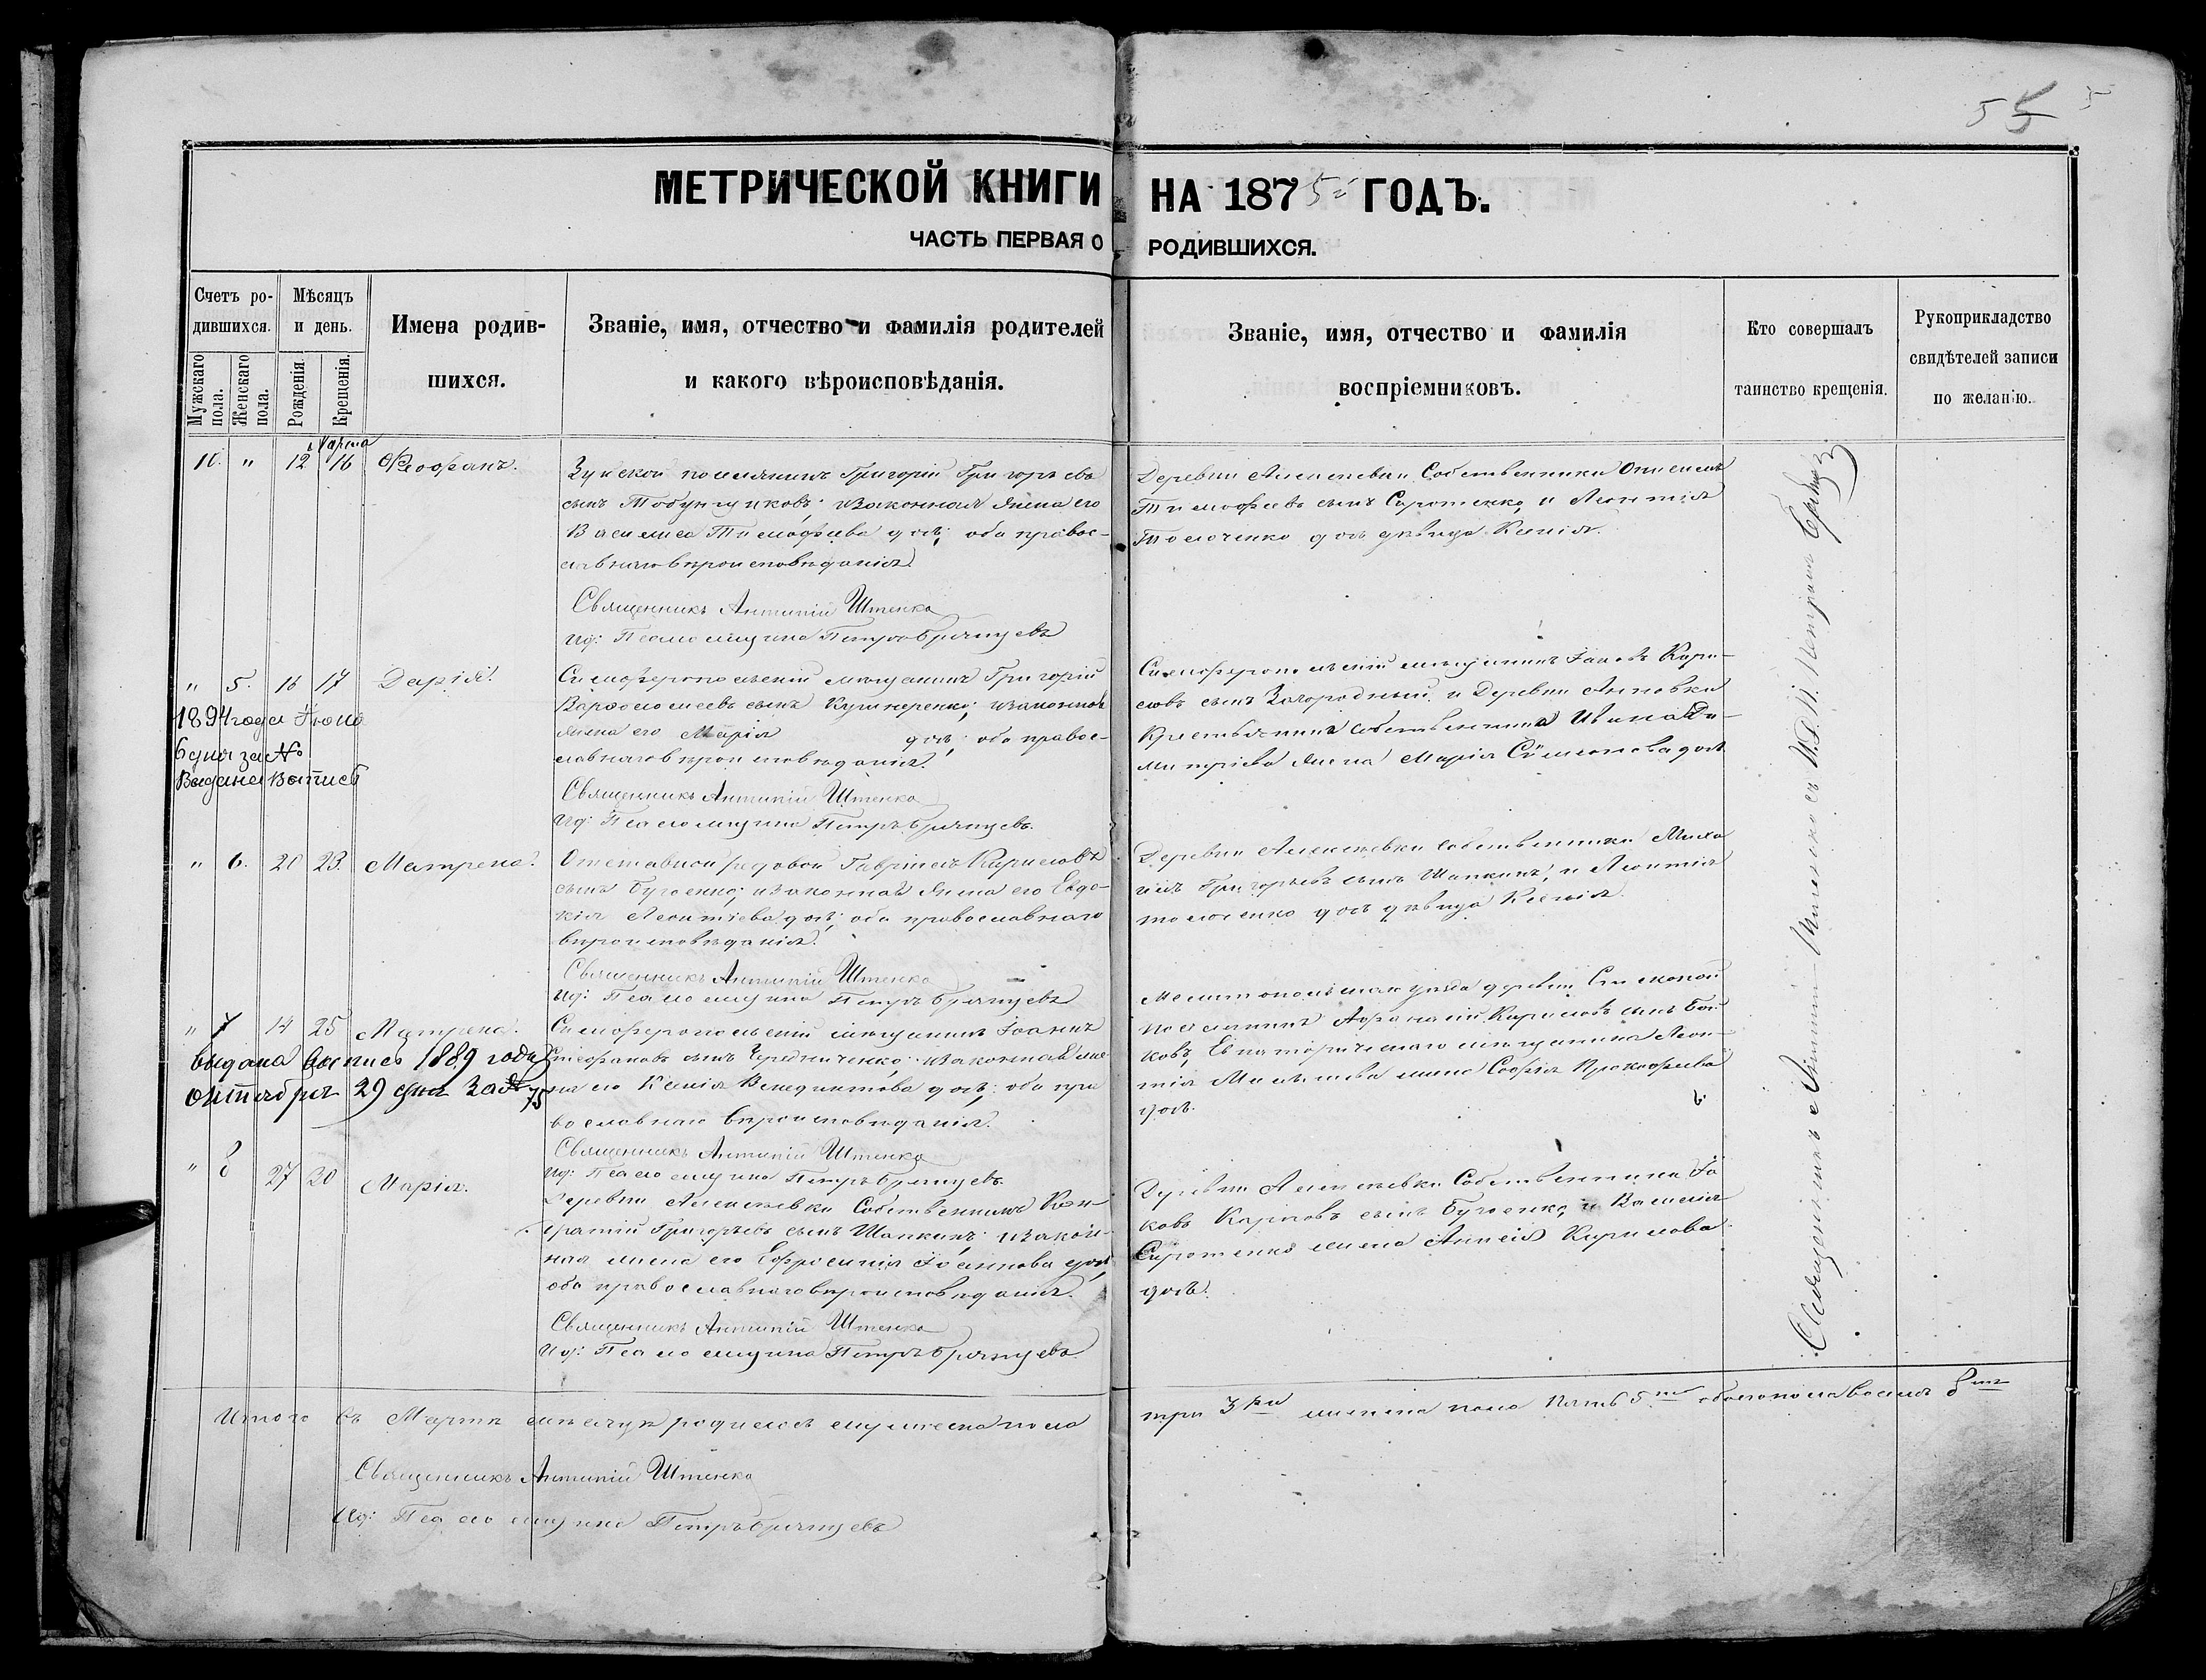 5
МЕТРИЧЕСКОЙ КНИГИ НА 1875 ГОДЪ.
ЧАСТЬ ПЕРВАЯ О РОДИВШИХСЯ.
Счетъ родившихся.
Мужскаго пола.
Женскаго пола.
Мѣсяцъ и день.
Рожденія.
Крещенія.
Имена родив-
шихся.
Званіе, имя, отчество и фамилія родителей
и какого вѣроисповѣданія.
Званіе, имя, отчество и фамилія
воспріемниковъ.
Кто совершалъ
таинство крещенія.
Рукоприкладство
свидѣтелей записи
по желанію.
Марта
10. " 12 16 Ѳеофанъ.
Зуйской поселянинъ Григорій Григорьевъ
сынъ Табунщиковъ; и законная жена его
Василиса Тимофѣева дочь; оба правос-
лавнаго вѣроисповѣданія.
Священникъ Антипій Штенко
Ид: Псаломщика Петръ Брянцевъ
Деревни Алексѣевки Собственники
Тимофѣевъ сынъ Сиротенко, и Леонтія
Толоченко дочь дѣвица Ксенія.
" 5. 16 17 Дарія.
1894 года Іюня
6 дня за №
Выдана Выпись
Симферопольскій мѣщанинъ Григорій
Варфоломеевъ сынъ Кушнеренко; и законная
жена его Марія дочь; оба правос-
лавнаго вѣроисповѣданія.
Священникъ Антипій Штенко
Ид: Псаломщика Петръ Брянцевъ.
Симферопольскій мѣщанинъ Іаковъ Кири-
ловъ сынъ Загородный. и Деревни Анновки
Крестьянина собственника Ивана Ди-
митріева жена Марія Симеонова дочь
" 6. 20 23. Матрена.
Отставной рядовой Гавріилъ Кириловъ
сынъ Бугаенко; и законная жена его Евдо-
кія Леонтіева дочь; оба православнаго
вѣроисповѣданія.
Священникъ Антипій Штенко
Ид: Псаломщика Петръ Брянцевъ
Деревни Алексѣевки собственники Миха
илъ Григорьевъ сынъ Шапкинъ, и Леонтія
Толоченко дочь дѣвица Ксенія.
" 7 14 25 Матрена.
Выдана выпись 1889 года
Октября 29 дня за № 75
Симферопольскій мѣщанинъ Іоаннъ
Стефановъ сынъ Чередниченко; и законная же-
на его Ксенія Венедиктова дочь; оба пра
вославнаго вѣроисповѣданія.
Священникъ Антипій Штенко
Ид: Псаломщика Петръ Брянцевъ.
Мелитопольскаго уѣзда деревни
поселянинъ Афанасій Кириловъ сынъ Бой
ковъ, Евпаторійскаго мѣщанина Леон-
тія жена Софія Прокофьева
дочь.
" 8 27 30 Марія.
Деревни Алексѣевки Собственникъ Кон-
дратій Григорьевъ сынъ Шапкинъ; и закон-
ная жена его Ефросинія Іоаннова дочь
оба православнаго вѣроисповѣданія.
Священникъ Антипій Штенко
Ид: Псаломщика Петръ Брянцевъ.
Деревни Алексѣевки Собственники Іа
ковъ Карповъ сынъ Бугаенко, и Василія
Сиротенко жена Анисія Кирилова
дочь.
Священникъ Антипій Штенко съ И. Д. П. Петромъ
Итого въ Мартѣ мѣсяцѣ родилось мужеска пола три 3 ри женска пола пять 5 ть обоего пола восемь 8 мь
Священникъ Антипій Штенко
Ид: Псаломщика Петръ Брянцевъ